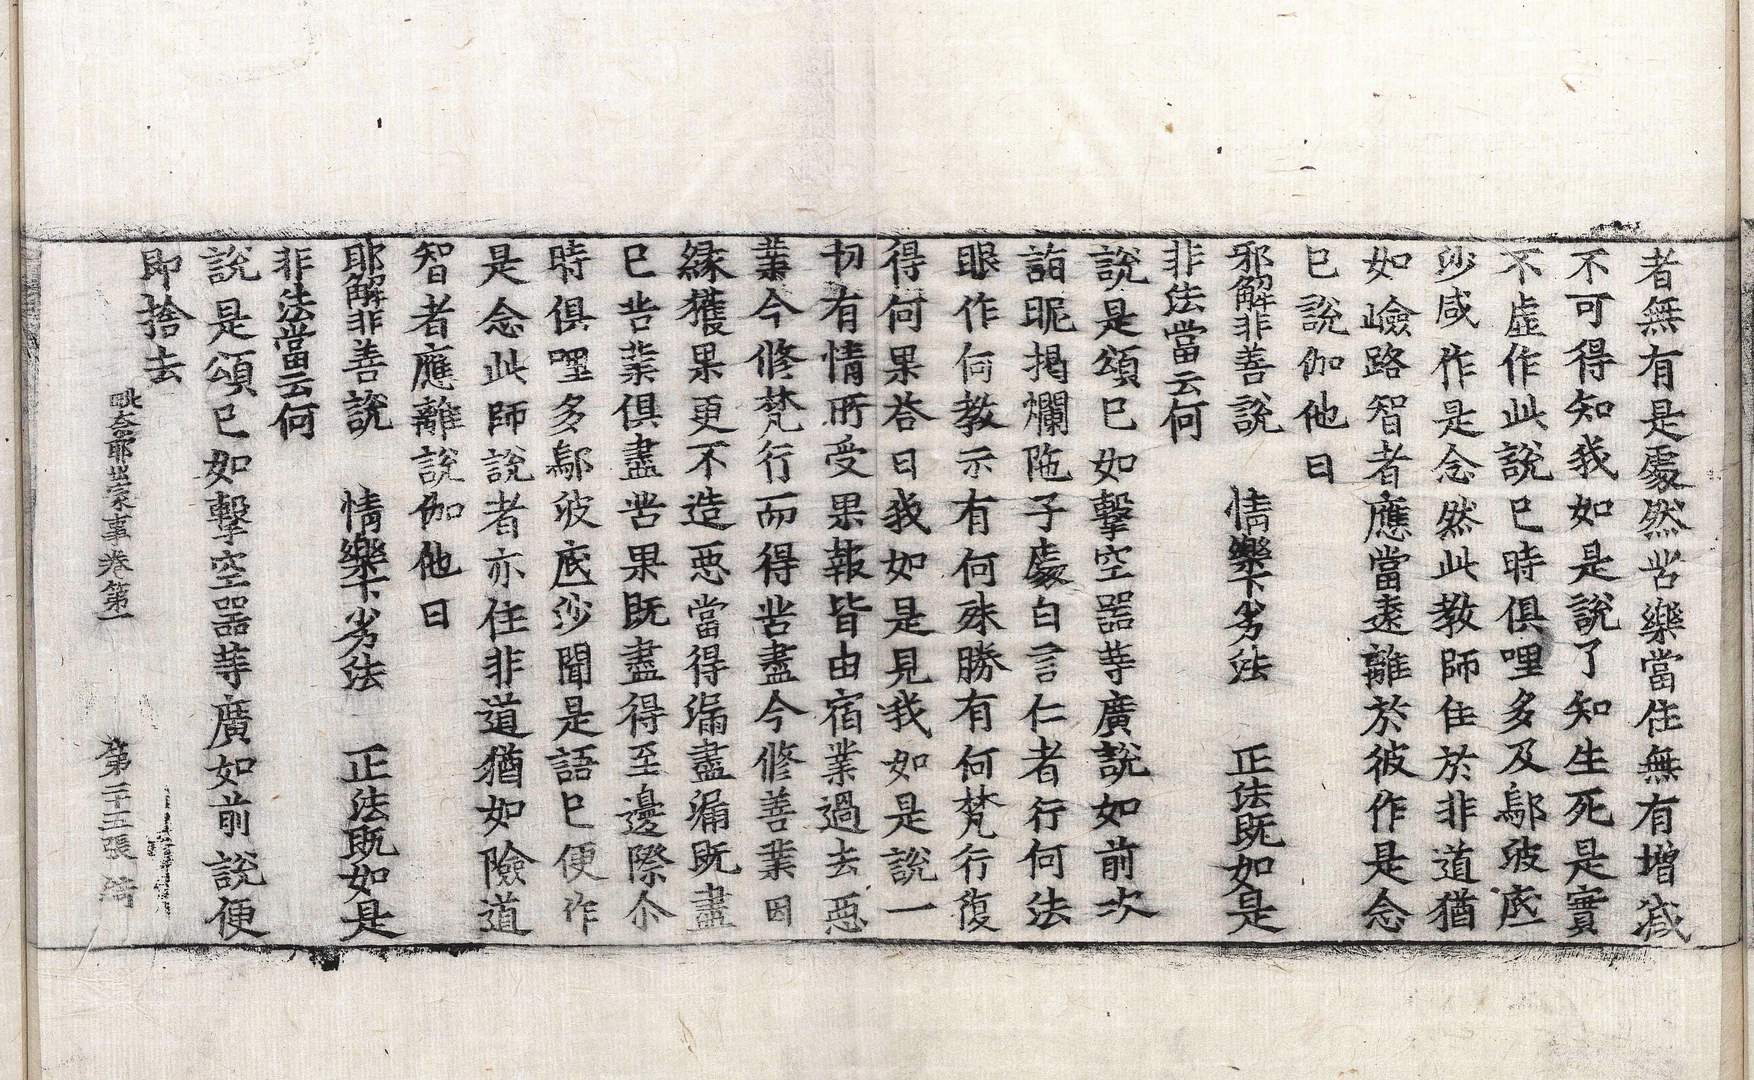 者無有是處然苦樂當住無有增減
不可得知我如是說了知生死是實
不虛作此說已時俱哩多及鄔波底
沙咸作是念然此教師住於非道猶
如嶮路智者應當遠離於彼作是念
已說伽他曰
邪解非善說　情樂下劣法　正法既如是
非法當云何
說是頌已如擊空器等廣說如前次
詣昵揭爛陁子處白言仁者行何法
眼作何教示有何殊勝有何梵行復
得何果荅曰我如是見我如是說一
切有情所受果報皆由宿業過去惡
業今修梵行而得苦盡今修善業因
緣獲果更不造惡當得漏盡漏既盡
已苦業俱盡苦果既盡得至邊際尒
時俱哩多鄔波底沙聞是語已便作
是念此師說者亦住非道猶如險道
智者應離說伽他曰
耶解非善說　情樂下劣法　正法既如是
非法當云何
說是頌已如擊空器等廣如前說便
即捨去
毗奈耶出家事卷第一　第二十五張　綺